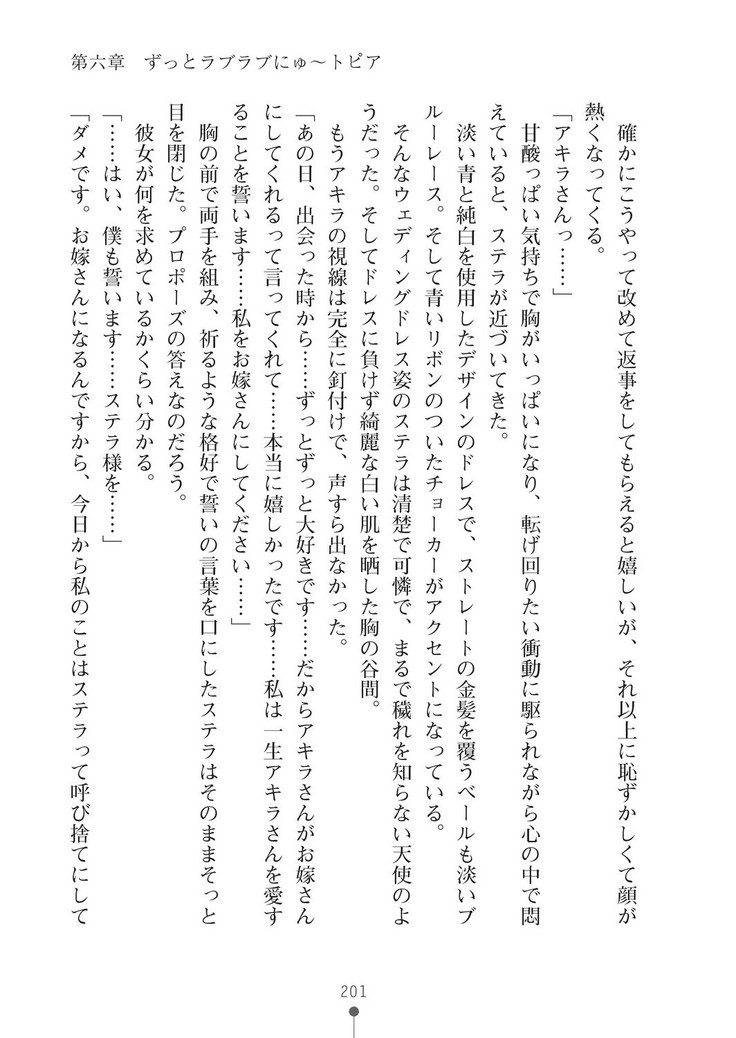 第六章　ずっとラブラブにゅ～トピア
　確かにこうやって改めて返事をしてもらえると嬉しいが、それ以上に恥ずかしくて顔が
熱くなってくる。
「アキラさんっ……」
　甘酸っぱい気持ちで胸がいっぱいになり、転げ回りたい衝動に駆られながら心の中で悶
えていると、ステラが近づいてきた。
　淡い青と純白を使用したデザインのドレスで、ストレートの金髪を覆うベールも淡いブ
ルーレース。そして青いリボンのついたチョーカーがアクセントになっている。
　そんなウェディングドレス姿のステラは清楚で可憐で、まるで穢れを知らない天使のよ
うだった。そしてドレスに負けず綺麗な白い肌を晒した胸の谷間。
　もうアキラの視線は完全に釘付けで、声すら出なかった。
「あの日、出会った時から……ずっとずっと大好きです……だからアキラさんがお嫁さん
にしてくれるって言ってくれて……本当に嬉しかったです……私は一生アキラさんを愛す
ることを誓います……私をお嫁さんにしてください……」
　胸の前で両手を組み、祈るような格好で誓いの言葉を口にしたステラはそのままそっと
目を閉じた。プロポーズの答えなのだろう。
　彼女が何を求めているかくらい分かる。
「……はい、僕も誓います……ステラ様を……」
「ダメです。お嫁さんになるんですから、今日から私のことはステラって呼び捨てにして
201